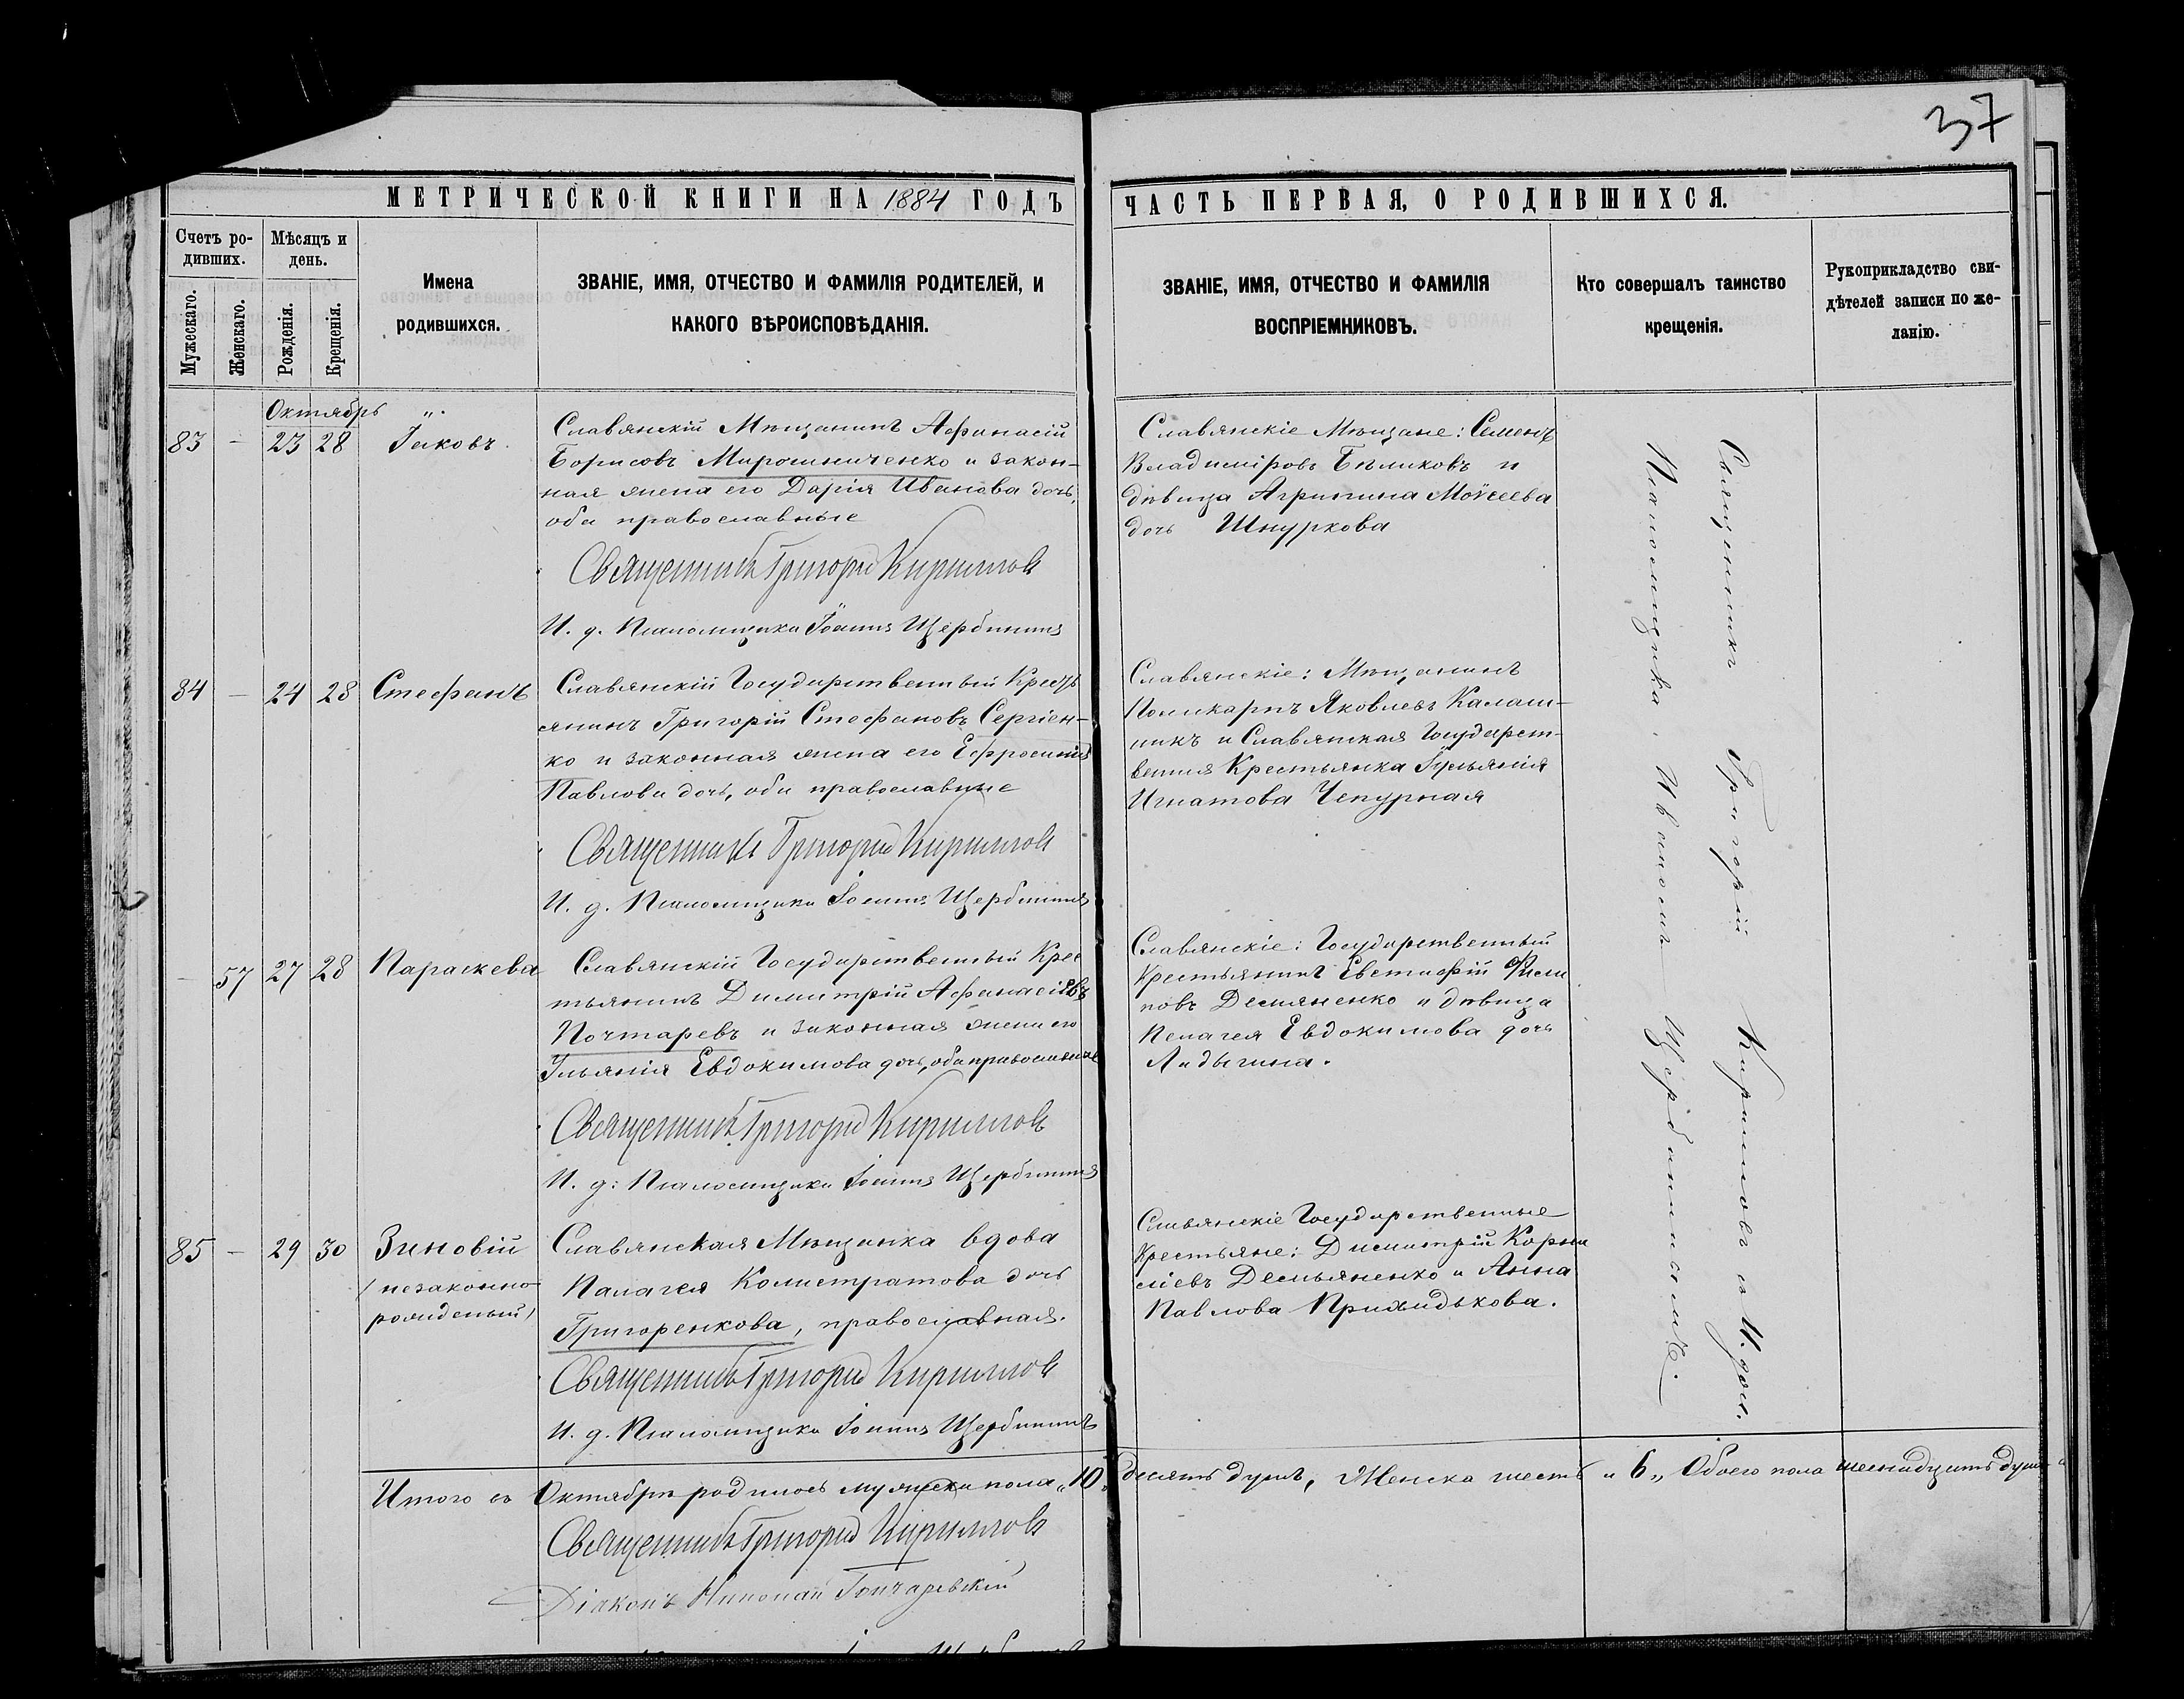 37
МЕТРИЧЕСКОЙ КНИГИ НА 1884 ГОДЪ
ЧАСТЬ ПЕРВАЯ, О РОДИВШИХСЯ.
Счетъ ро-
дивших.
Мужескаго.
Женскаго.
Мѣсяцъ и
день.
Рожденія.
Крещенія.
Имена
родившихся.
ЗВАНІЕ, ИМЯ, ОТЧЕСТВО И ФАМИЛІЯ РОДИТЕЛЕЙ, И
КАКОГО ВѢРОИСПОВѢДАНІЯ.
ЗВАНІЕ, ИМЯ, ОТЧЕСТВО И ФАМИЛІЯ
ВОСПРІЕМНИКОВЪ.
Кто совершалъ таинство
крещенія.
Рукоприкладство сви-
дѣтелей записи по же-
ланію.
Октябрь "
83 - 23 28 Іаковъ.
Славянскій Мѣщанинъ Афанасій
Борисовъ Мирошниченко и закон-
ная жена его Дарія Иванова дочь,
оба православные
Священникъ Григорій Кирилловъ
И. д. Псаломщика Іоаннъ Щербининъ
Славянскіе Мѣщане: Семенъ
Владиміровъ Бѣликовъ и
дѣвица Агрипина Моѵсеева
дочь Шнуркова
84 - 24 28 Стефанъ
Славянскій Государственный Кресть
янинъ Григорій Стефановъ Сергіен-
ко и законная жена его Ефросинія
Павлова дочь, оба православные
Священникъ Григорій Кирилловъ
И. д. Псаломщика Іоаннъ Щербининъ
Славянскіе: Мѣщанинъ
Поликарпъ Яковлевъ Калаш-
никъ и Славянская Государст-
венная Крестьянка Іульянія
Игнатова Чепурная
- 57 27 28 Параскева
Славянскій Государственный Крес
тьянинъ Димитрій Афанасіевъ
Почтаревъ и законная жена его
Іульянія Евдокимова дочь, оба православные
Священникъ Григорій Кирилловъ
И. д: Псаломщика Іоаннъ Щербининъ
Славянскіе: Государственный
Крестьянинъ Евстафій Фили
повъ Демяненко и дѣвица
Пелагея Евдокимова дочь
Ладыгина.
85 - 29 30 Зиновій
(незаконно
рожденый)
Славянская Мѣщанка вдова
Палагея Калистратова дочь
Григоренкова, православная.
Священникъ Григорій Кирилловъ
И. д. Псаломщика Іоаннъ Щербининъ
Славянскіе Государственные
Крестьяне: Димитрій Корни
ліевъ Демьяненко и Анна
Павлова Прихидькова.
Священникъ Григорій Кирилловъ съ И. дол.
Псаломщика Иваномъ Щербининымъ.
Итого въ Октябрѣ родилось мужеска пола "10" десять душъ, Женска шесть "6" Обоего пола шестнадцать душъ
Священникъ Григорій Кирилловъ
Діаконъ Николай Гончаревскій